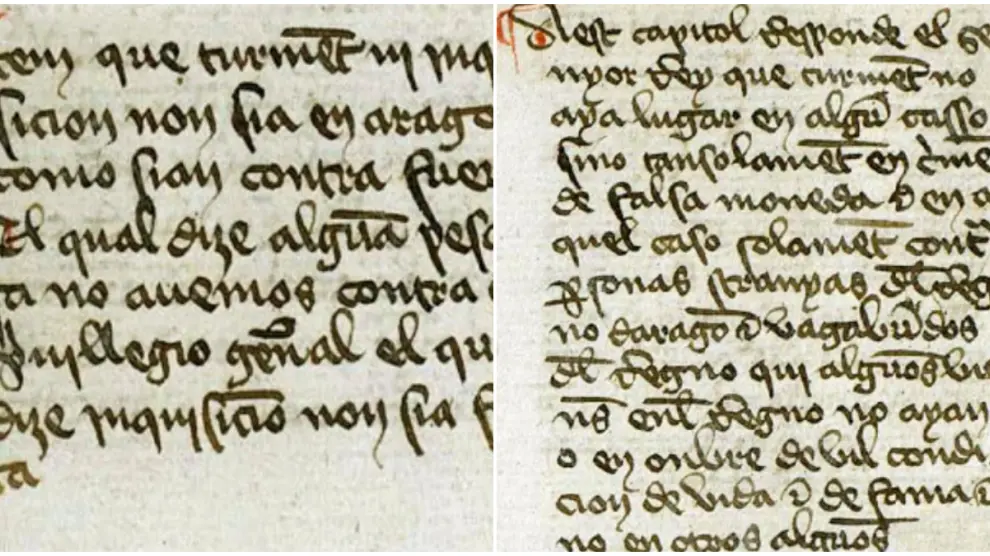 tem que turmet ni inq
sicion non sia en arago
como sian contra fuer
El qual dize algũa pesq
ta no auemos contra
priuillegio gẽnal el qu
dize inquisiciõ non sia f
ta
Aest capitol Responde el Se
nyor Rey que turmẽt no
aya lugar en algũ casso
sino tansolamẽt en crime
de falsa moneda ⁊ en a
quel caso solamẽt cont
ꝑsonas stranyas del Reg
no daragõ ⁊ vagabũdos
del Regno qui algũos
ns enl Regno no ayan
o en onbre de vil condi
cion de vida ⁊ de fama ⁊
no en otros algũos